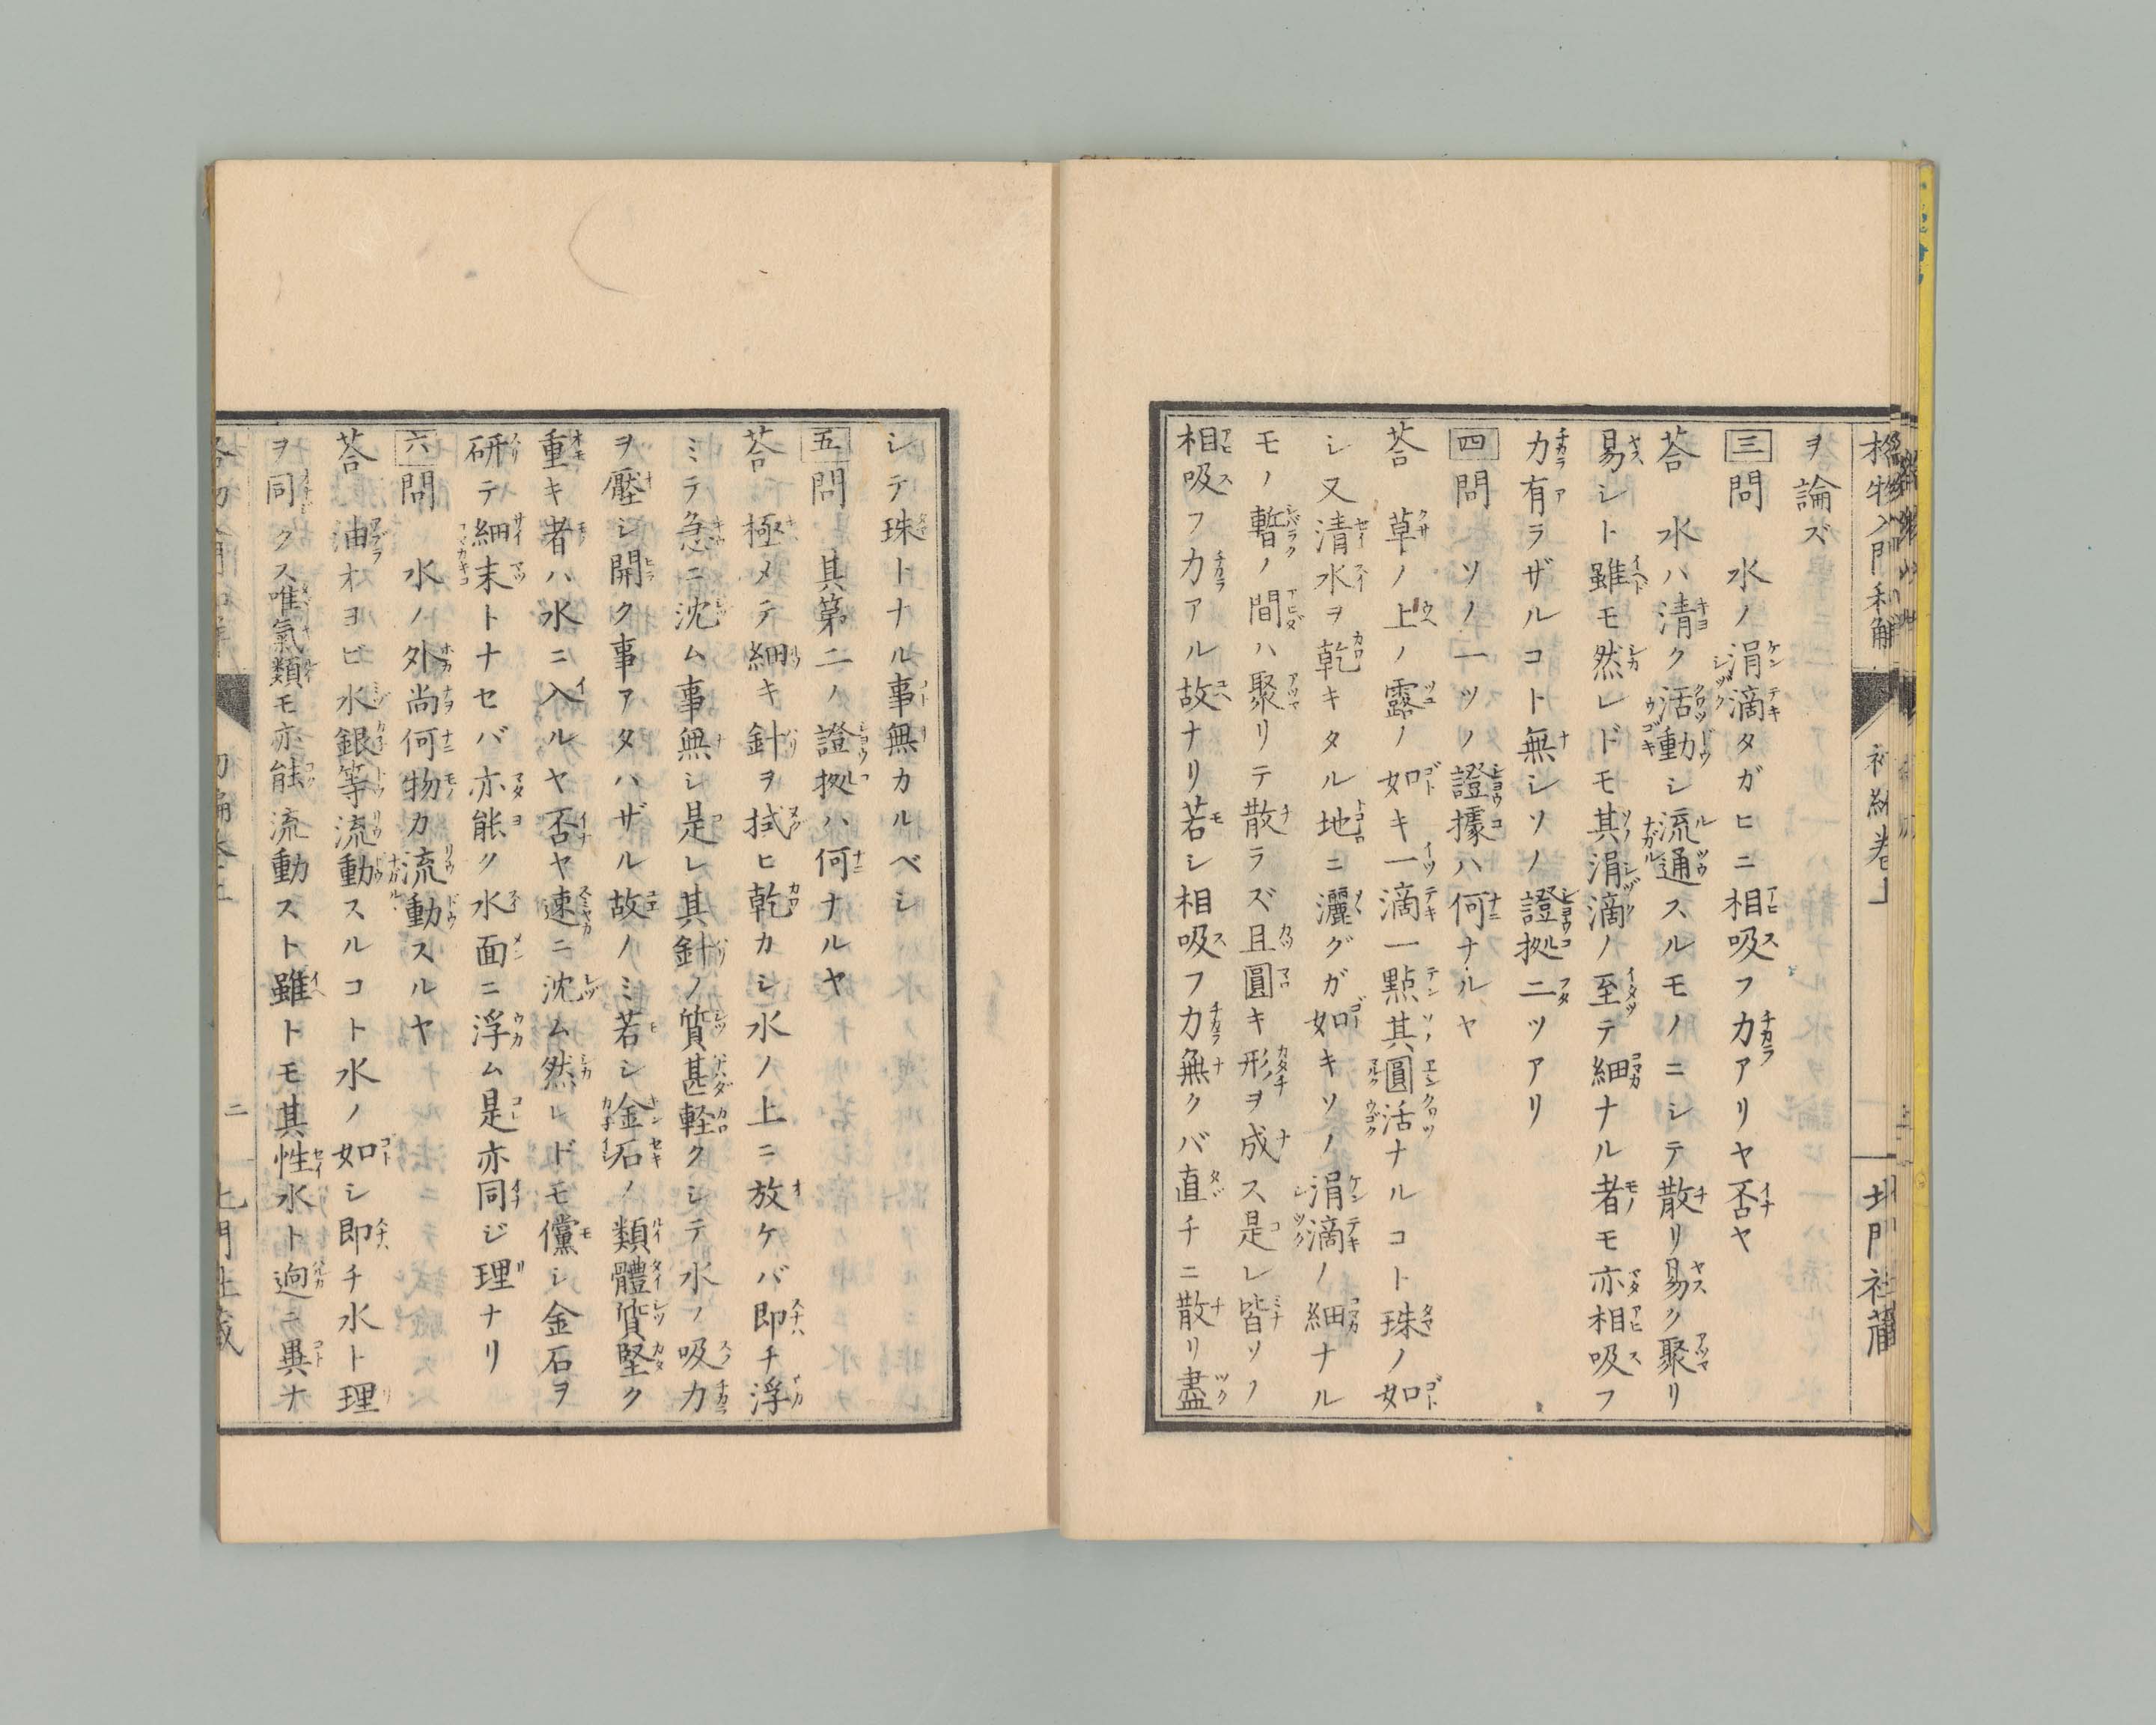 格物入門和解
初編巻上
北門社蔵
ヲ論ズ
三問 水ノ涓滴タガヒニ相吸フ力アリヤ否ヤ
荅 水ハ清ク活動シ流通スルモノニシテ散リ易ク聚リ
易シト雖モ然レドモ其涓滴ノ至テ細ナル者モ亦相吸フ
力有ラザルコト無シソノ證拠二ツアリ
四問 ソノ一ツノ證據ハ何ナルヤ
荅 草ノ上ノ露ノ如キ一滴一點其圓活ナルコト珠ノ如
シ又清水ヲ乾キタル地ニ灑グガ如キソノ涓滴ノ細ナル
モノ暫ノ間ハ聚リテ散ラズ且圓キ形ヲ成ス是レ皆ソノ
相吸フ力アル故ナリ若シ相吸フ力無クバ直チニ散リ盡
シテ珠トナル事無カルベシ
五問 其第二ノ證拠ハ何ナルヤ
荅 極メテ細キ針ヲ拭ヒ乾カシ水ノ上ニ放ケバ即チ浮
ミテ急ニ沈ム事無シ是レ其針ノ質甚軽クシテ水ノ吸力
ヲ壓シ開ク事アタハザル故ノミ若シ金石ノ類體質堅ク
重キ者ハ水ニ入ルヤ否ヤ速ニ沈ム然レドモ儻シ金石ヲ
研テ細末トナセバ亦能ク水面ニ浮ム是亦同ジ理ナリ
六問 水ノ外尚何物カ流動スルヤ
荅 油オヨビ水銀等流動スルコト水ノ如シ即チ水ト理
ヲ同クス唯氣類モ亦能流動スト雖トモ其性水ト逈ニ異ナ
二